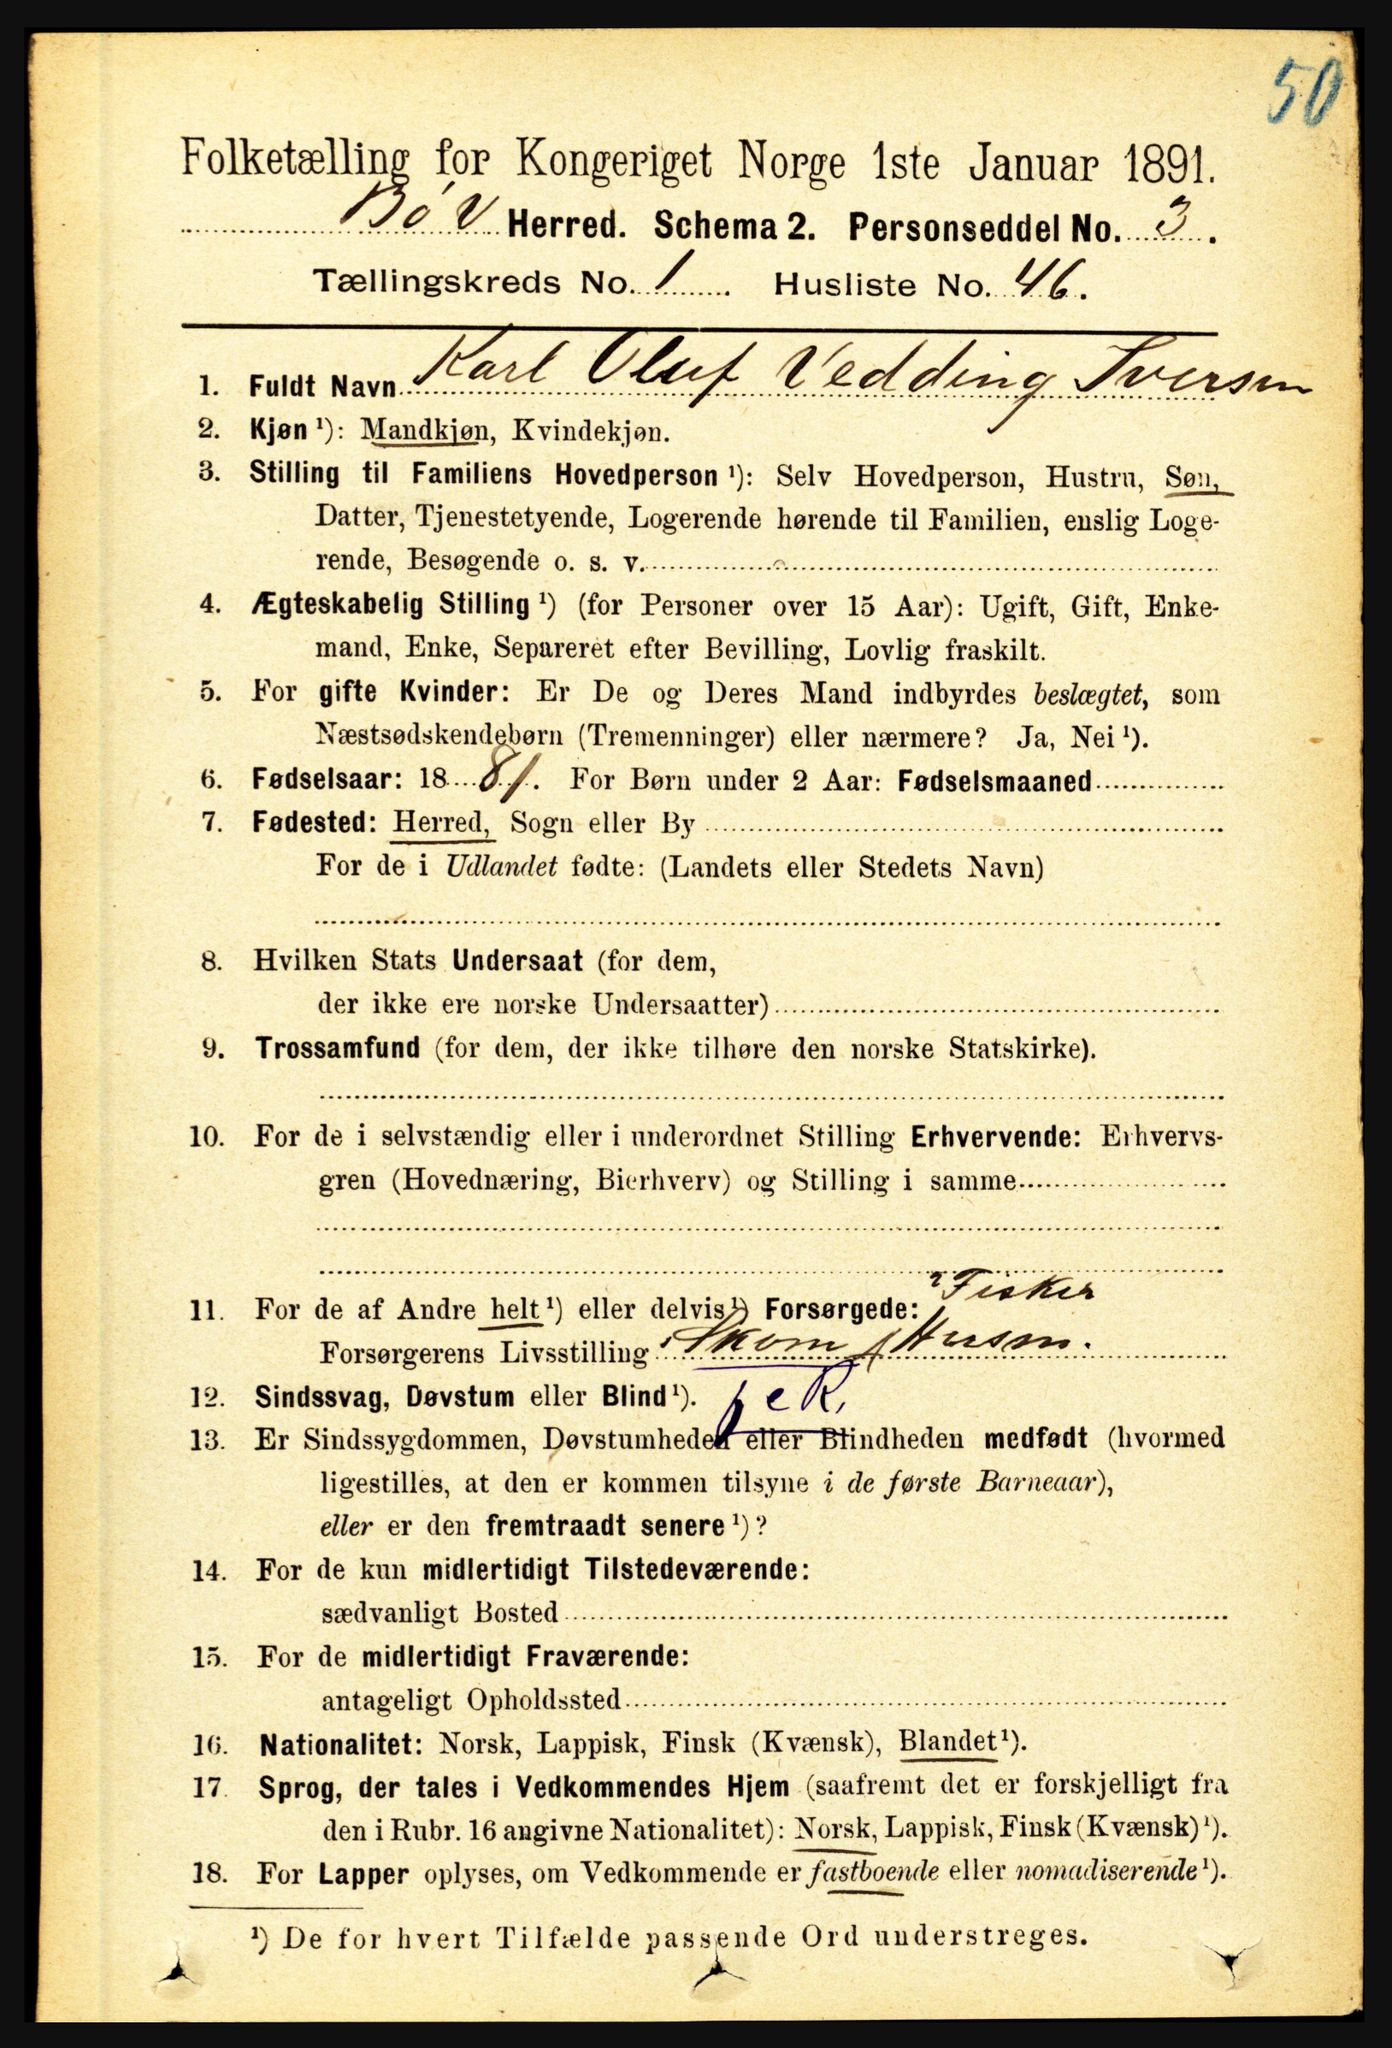 50
Folketælling for Kongeriget Norge 1ste Januar 1891.
Bø V Herred. Schema 2. Personseddel No. 3.
Tællingskreds No. 1 Husliste No. 46.
1. Fuldt Navn Karl Oluf Vedding Iversen
2. Kjøn ¹): Mandkjøn, Kvindekjøn.
3. Stilling til Familiens Hovedperson ¹): Selv Hovedperson, Hustru, Søn,
Datter, Tjenestetyende, Logerende hørende til Familien, enslig Loge-
rende, Besøgende o. s. v.
4. Ægteskabelig Stilling ¹) (for Personer over 15 Aar): Ugift, Gift, Enke-
mand, Enke, Separeret efter Bevilling, Lovlig fraskilt.
5. For gifte Kvinder: Er De og Deres Mand indbyrdes beslægtet, som
Næstsødskendebørn (Tremenninger) eller nærmere? Ja, Nei ¹).
6. Fødselsaar: 18 81. For Børn under 2 Aar: Fødselsmaaned
7. Fødested: Herred, Sogn eller By
For de i Udlandet fødte: (Landets eller Stedets Navn)
8. Hvilken Stats Undersaat (for dem,
der ikke ere norske Undersaatter)
9. Trossamfund (for dem, der ikke tilhøre den norske Statskirke).
10. For de i selvstændig eller i underordnet Stilling Erhvervende: Erhvervs-
gren (Hovednæring, Bierhverv) og Stilling i samme
Fisker
11. For de af Andre helt ¹) eller delvis ¹) Forsørgede:
Forsørgerens Livsstilling
12. Sindssvag, Døvstum eller Blind ¹).
13. Er Sindssygdommen, Døvstumheden eller Blindheden medfødt (hvormed
ligestilles, at den er kommen tilsyne i de første Barneaar),
eller er den fremtraadt senere ¹)?
14. For de kun midlertidigt Tilstedeværende:
sædvanligt Bosted
15. For de midlertidigt Fraværende:
antageligt Opholdssted
16. Nationalitet: Norsk, Lappisk, Finsk (Kvænsk), Blandet ¹).
17. Sprog, der tales i Vedkommendes Hjem (saafremt det er forskjelligt fra
den i Rubr. 16 angivne Nationalitet): Norsk, Lappisk, Finsk (Kvænsk) ¹).
18. For Lapper oplyses, om Vedkommende er fastboende eller nomadiserende ¹).
¹) De for hvert Tilfælde passende Ord understreges.